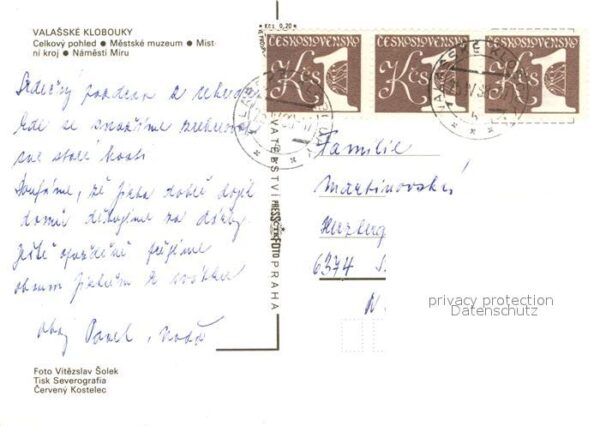 VALAŠSKÉ KLOBOUKY
Celkový pohled ● Městské muzeum ● Míst-
ní kroj ● Náměstí Míru
Kčs 0,20
ČESKOSLOVENSKO
Kčs 1
ČESKOSLOVENSKO
Kčs 1
ČESKOSLOVENSKO
Kčs 1
Srdečný pozdrav z
kde se snažíme
své staré kosti
Doufáme, že jste dobře dojeli
domů děkujeme za dárky
Ještě opožděně přejeme
oběma
ahoj Pavel,
VATELSTVÍ PRESSFOTO PRAHA
Familie
Martinovski
Herzberg
6374 S.
N.
privacy protection
Datenschutz
Foto Vítězslav Šolek
Tisk Severografia
Červený Kostelec